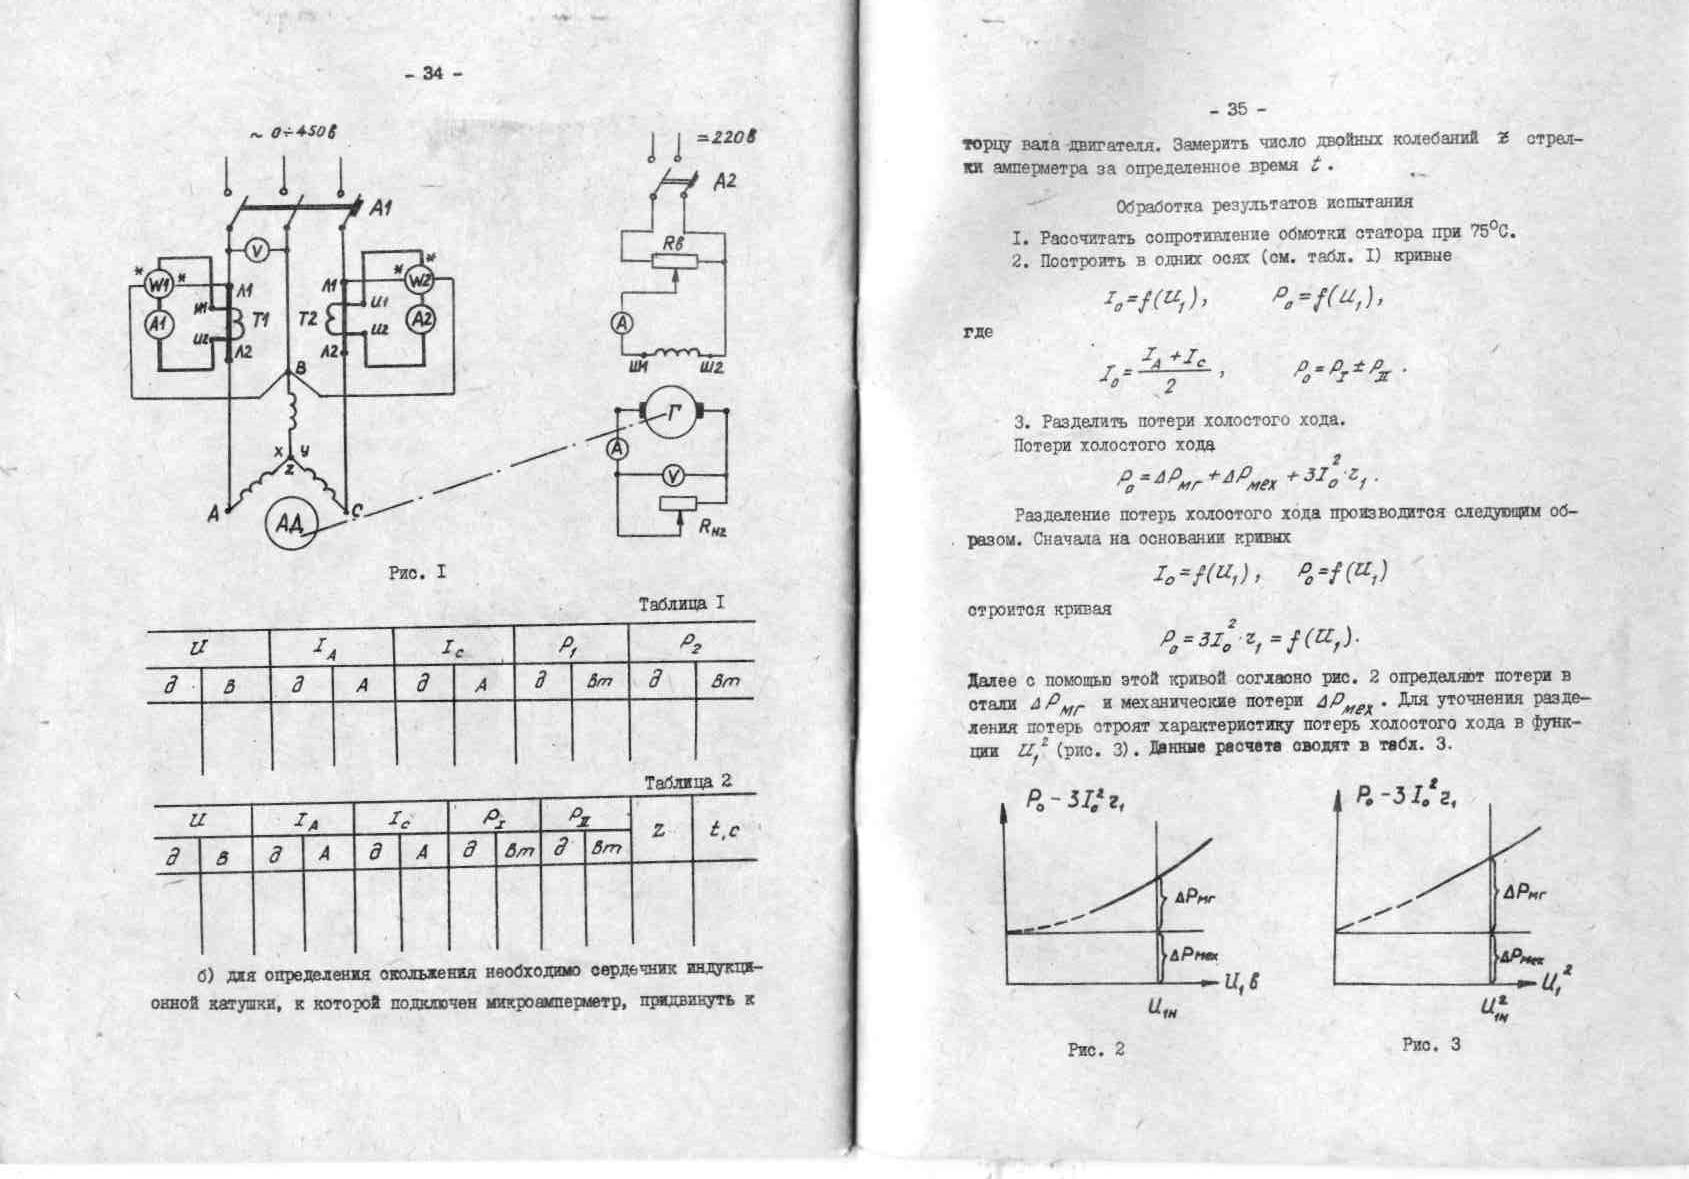 - 34 -
~ 0÷450в
=220в
А1
А2
V
* W1 *
* W2 *
Л1
Л1
И1
И1
Rв
А1
Т1
Т2
А2
И2
И2
А
Л2
Л2
Ш1
Ш2
В
Г
А
X У
Z
V
А
С
АД
Rнг
Рис. I
Таблица I
U I_A I_C P_1 P_2
д В д А д А д Вт д Вт
Таблица 2
U I_A I_C P_I P_II Z t,с
д В д А д А д Вт д Вт
б) для определения скольжения необходимо сердечник индукци-
онной катушки, к которой подключен микроамперметр, придвинуть к
- 35 -
торцу вала двигателя. Замерить число двойных колебаний z стрел-
ки амперметра за определенное время t.
Обработка результатов испытания
I. Рассчитать сопротивление обмотки статора при 75°С.
2. Построить в одних осях (см. табл. I) кривые
I₀=f(U₁), P₀=f(U₁),
где
I₀ = (I_A + I_C)/2, P₀=P_I ± P_II.
3. Разделить потери холостого хода.
Потери холостого хода
P₀=ΔP_мг+ΔP_мех+3I₀²·r₁.
Разделение потерь холостого хода производится следующим об-
разом. Сначала на основании кривых
I₀=f(U₁), P₀=f(U₁)
строится кривая
P₀=3I₀²·r₁=f(U₁).
Далее с помощью этой кривой согласно рис. 2 определяют потери в
стали ΔP_мг и механические потери ΔP_мех. Для уточнения разде-
ления потерь строят характеристику потерь холостого хода в функ-
ции U₁² (рис. 3). Данные расчета сводят в табл. 3.
P₀-3I₀²r₁
P₀-3I₀²r₁
ΔP_мг
ΔP_мг
ΔP_мех
ΔP_мех
U₁В
U₁²
U_1н
U²_1н
Рис. 2
Рис. 3